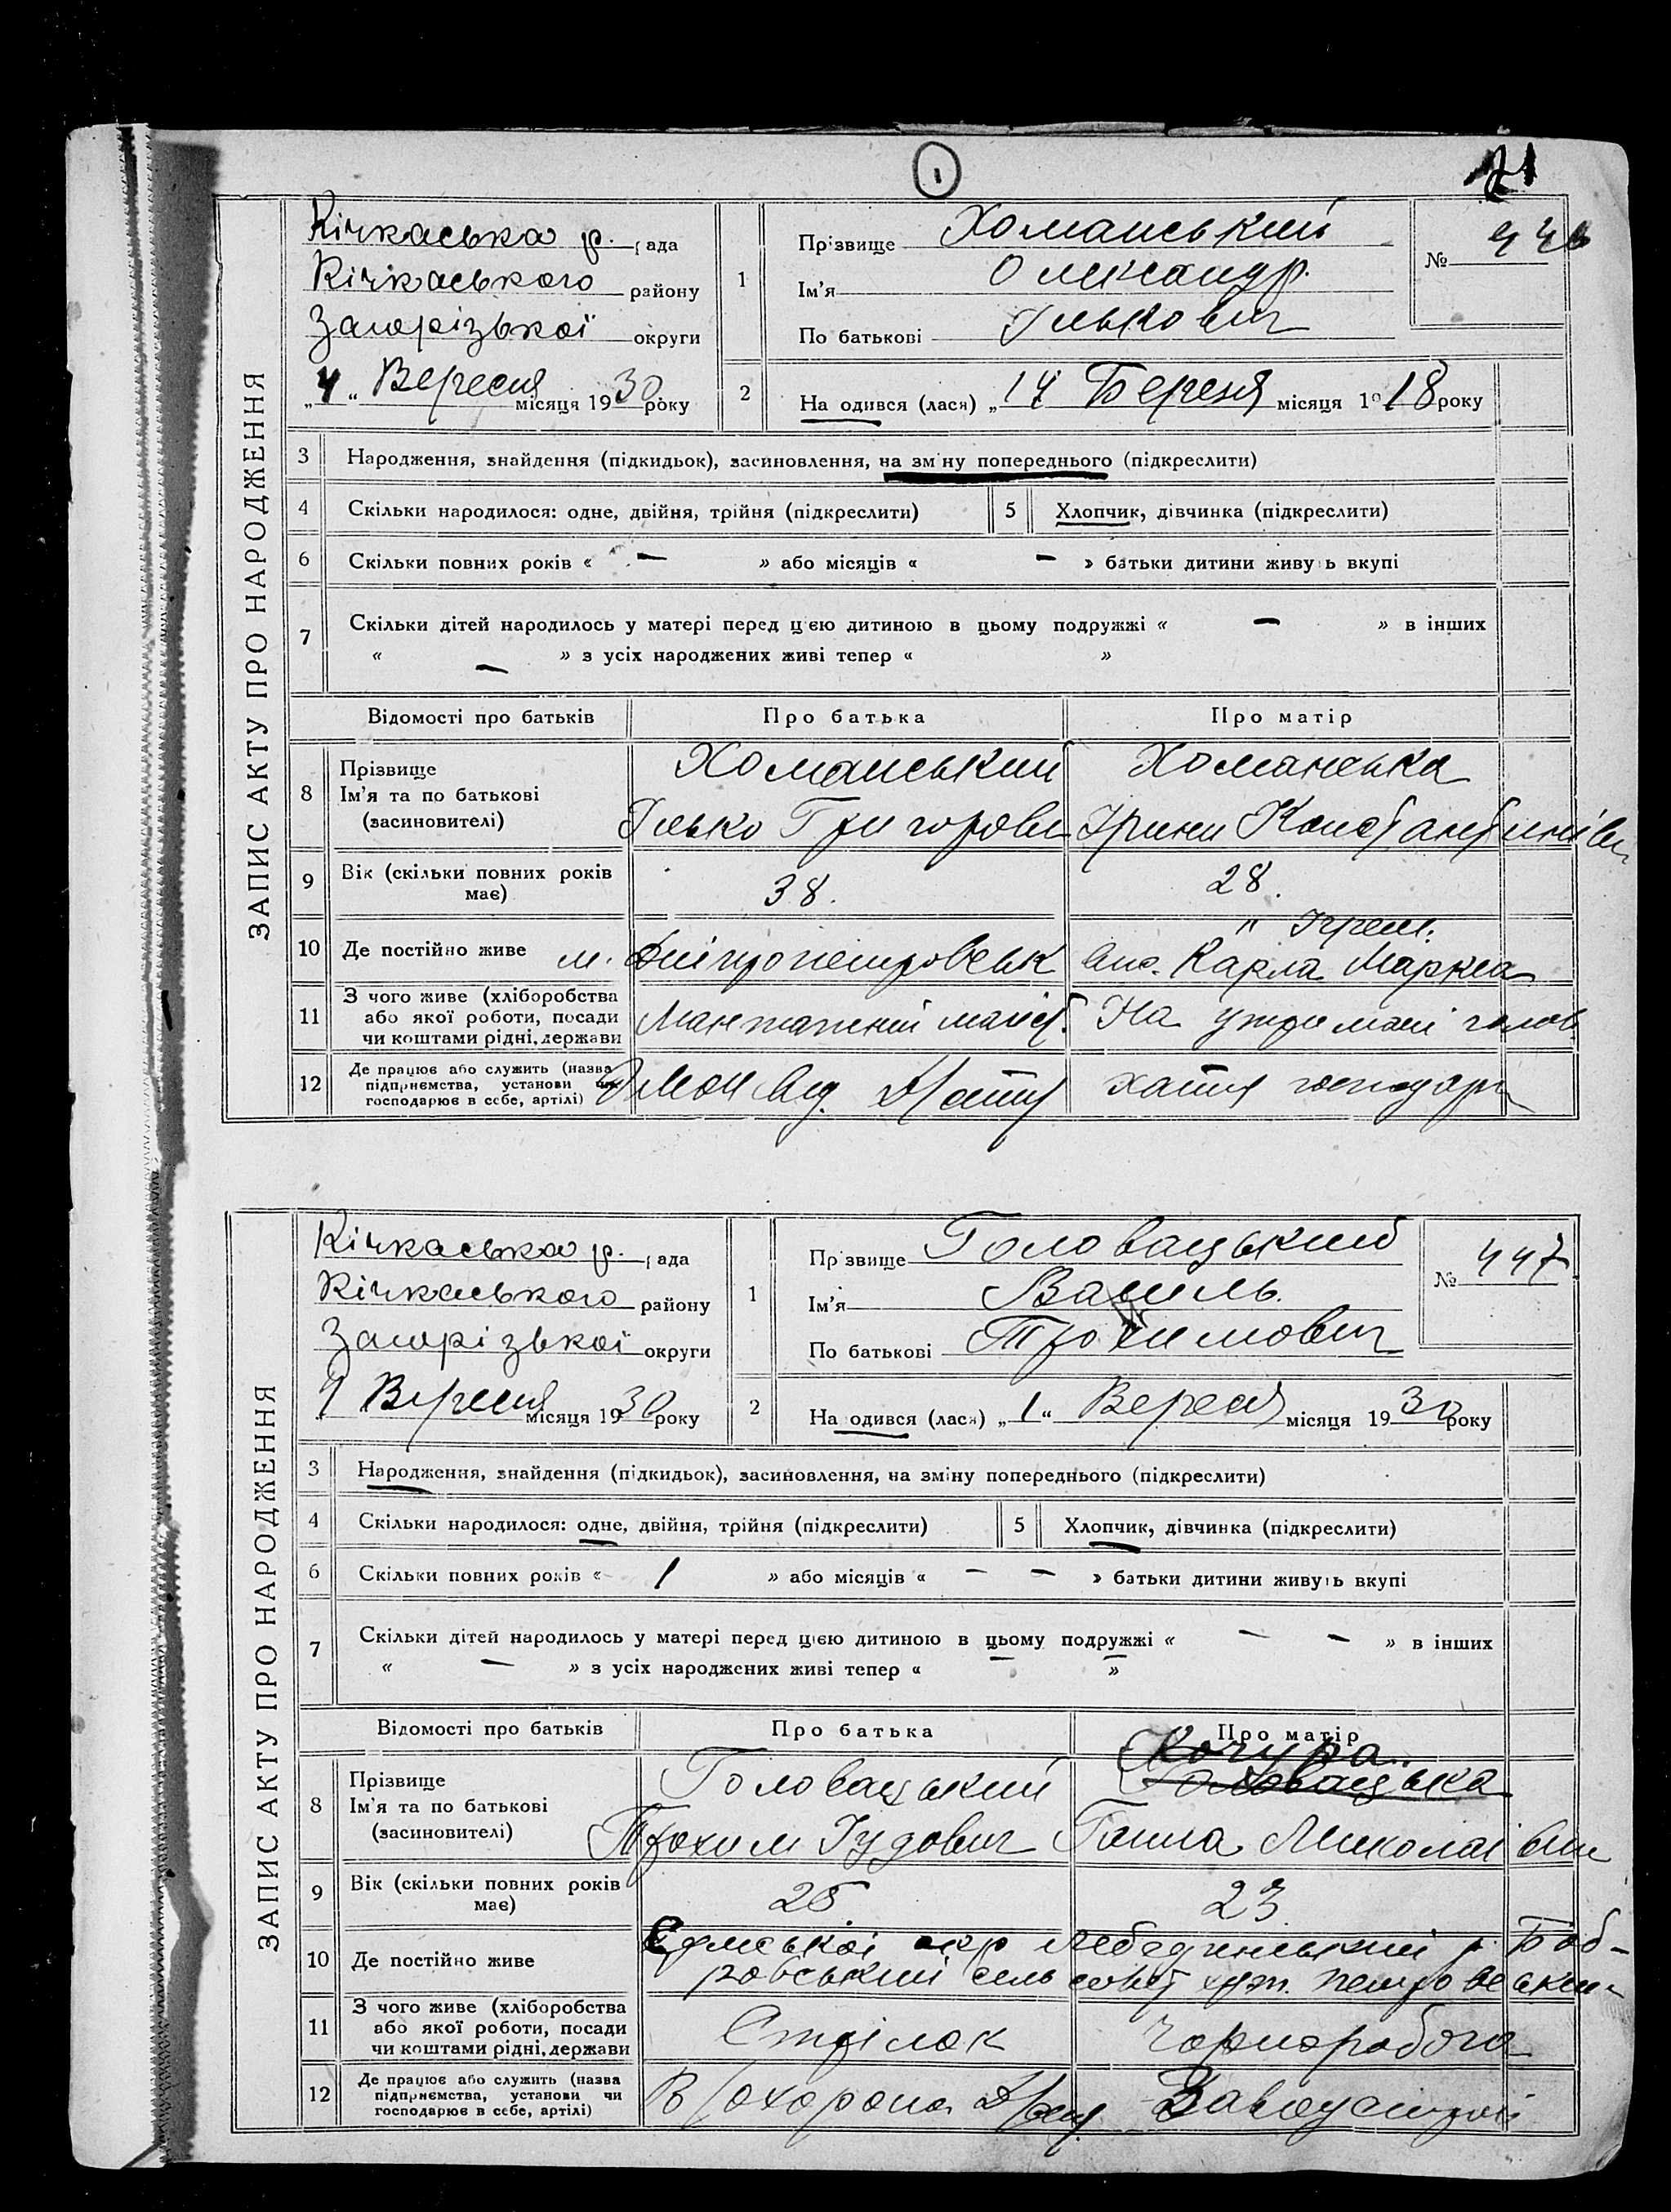 1
71
ЗАПИС АКТУ ПРО НАРОДЖЕННЯ
Кічкаська р. рада
Кічкаського району
Запорізької округи
„4“ Вересня місяця 1930 року
1
Прізвище Хоманський
Ім'я Олександр.
По батькові Ількович
№ 446
2
Народився (лася) „14 Березня місяця 1918 року
3 Народження, знайдення (підкидьок), засиновлення, на зміну попереднього (підкреслити)
4 Скільки народилося: одне, двійня, трійня (підкреслити) 5 Хлопчик, дівчинка (підкреслити)
6 Скільки повних років « — » або місяців « — » батьки дитини живуть вкупі
7 Скільки дітей народилось у матері перед цією дитиною в цьому подружжі « — » в інших
« — » з усіх народжених живі тепер « »
Відомості про батьків Про батька Про матір
8 Прізвище
Ім'я та по батькові
(засиновителі)
Хоманський Хоманська
Ілько Григорови Ірини Константинівн
9 Вік (скільки повних років
має)
38. 28.
10 Де постійно живе м. Дніпропетровськ вул. Карла Маркса
11 З чого живе (хліборобства
або якої роботи, посади
чи коштами рідні, держави
Мантажний майст. На утриманні голов
12 Де працює або служить (назва
підприємства, установи чи
господарює в себе, артілі)
хатня господарк
ЗАПИС АКТУ ПРО НАРОДЖЕННЯ
Кічкаська р. рада
Кічкаського району
Запорізької округи
4 Вересня місяця 1930 року
1
Прізвище Головацький
Ім'я Василь.
По батькові Трохимович
№ 447
2
Народився (лася) „1“ Вересня місяця 1930 року
3 Народження, знайдення (підкидьок), засиновлення, на зміну попереднього (підкреслити)
4 Скільки народилося: одне, двійня, трійня (підкреслити) 5 Хлопчик, дівчинка (підкреслити)
6 Скільки повних років « 1 » або місяців « — — » батьки дитини живуть вкупі
7 Скільки дітей народилось у матері перед цією дитиною в цьому подружжі « — — » в інших
« — » з усіх народжених живі тепер « — — »
Відомості про батьків Про батька Про матір
Кочура.
8 Прізвище
Ім'я та по батькові
(засиновителі)
Головацький Головацька
Трохим Іудович Ганна Миколаївн
9 Вік (скільки повних років
має)
25 23
10 Де постійно живе
Сумської окр Лебединський р. Боб-
ровський сель совет хут. Петровськи
11 З чого живе (хліборобства
або якої роботи, посади
чи коштами рідні, держави
Стрілок Чорноробоча
12 Де працює або служить (назва
підприємства, установи чи
господарює в себе, артілі)
В/охорона